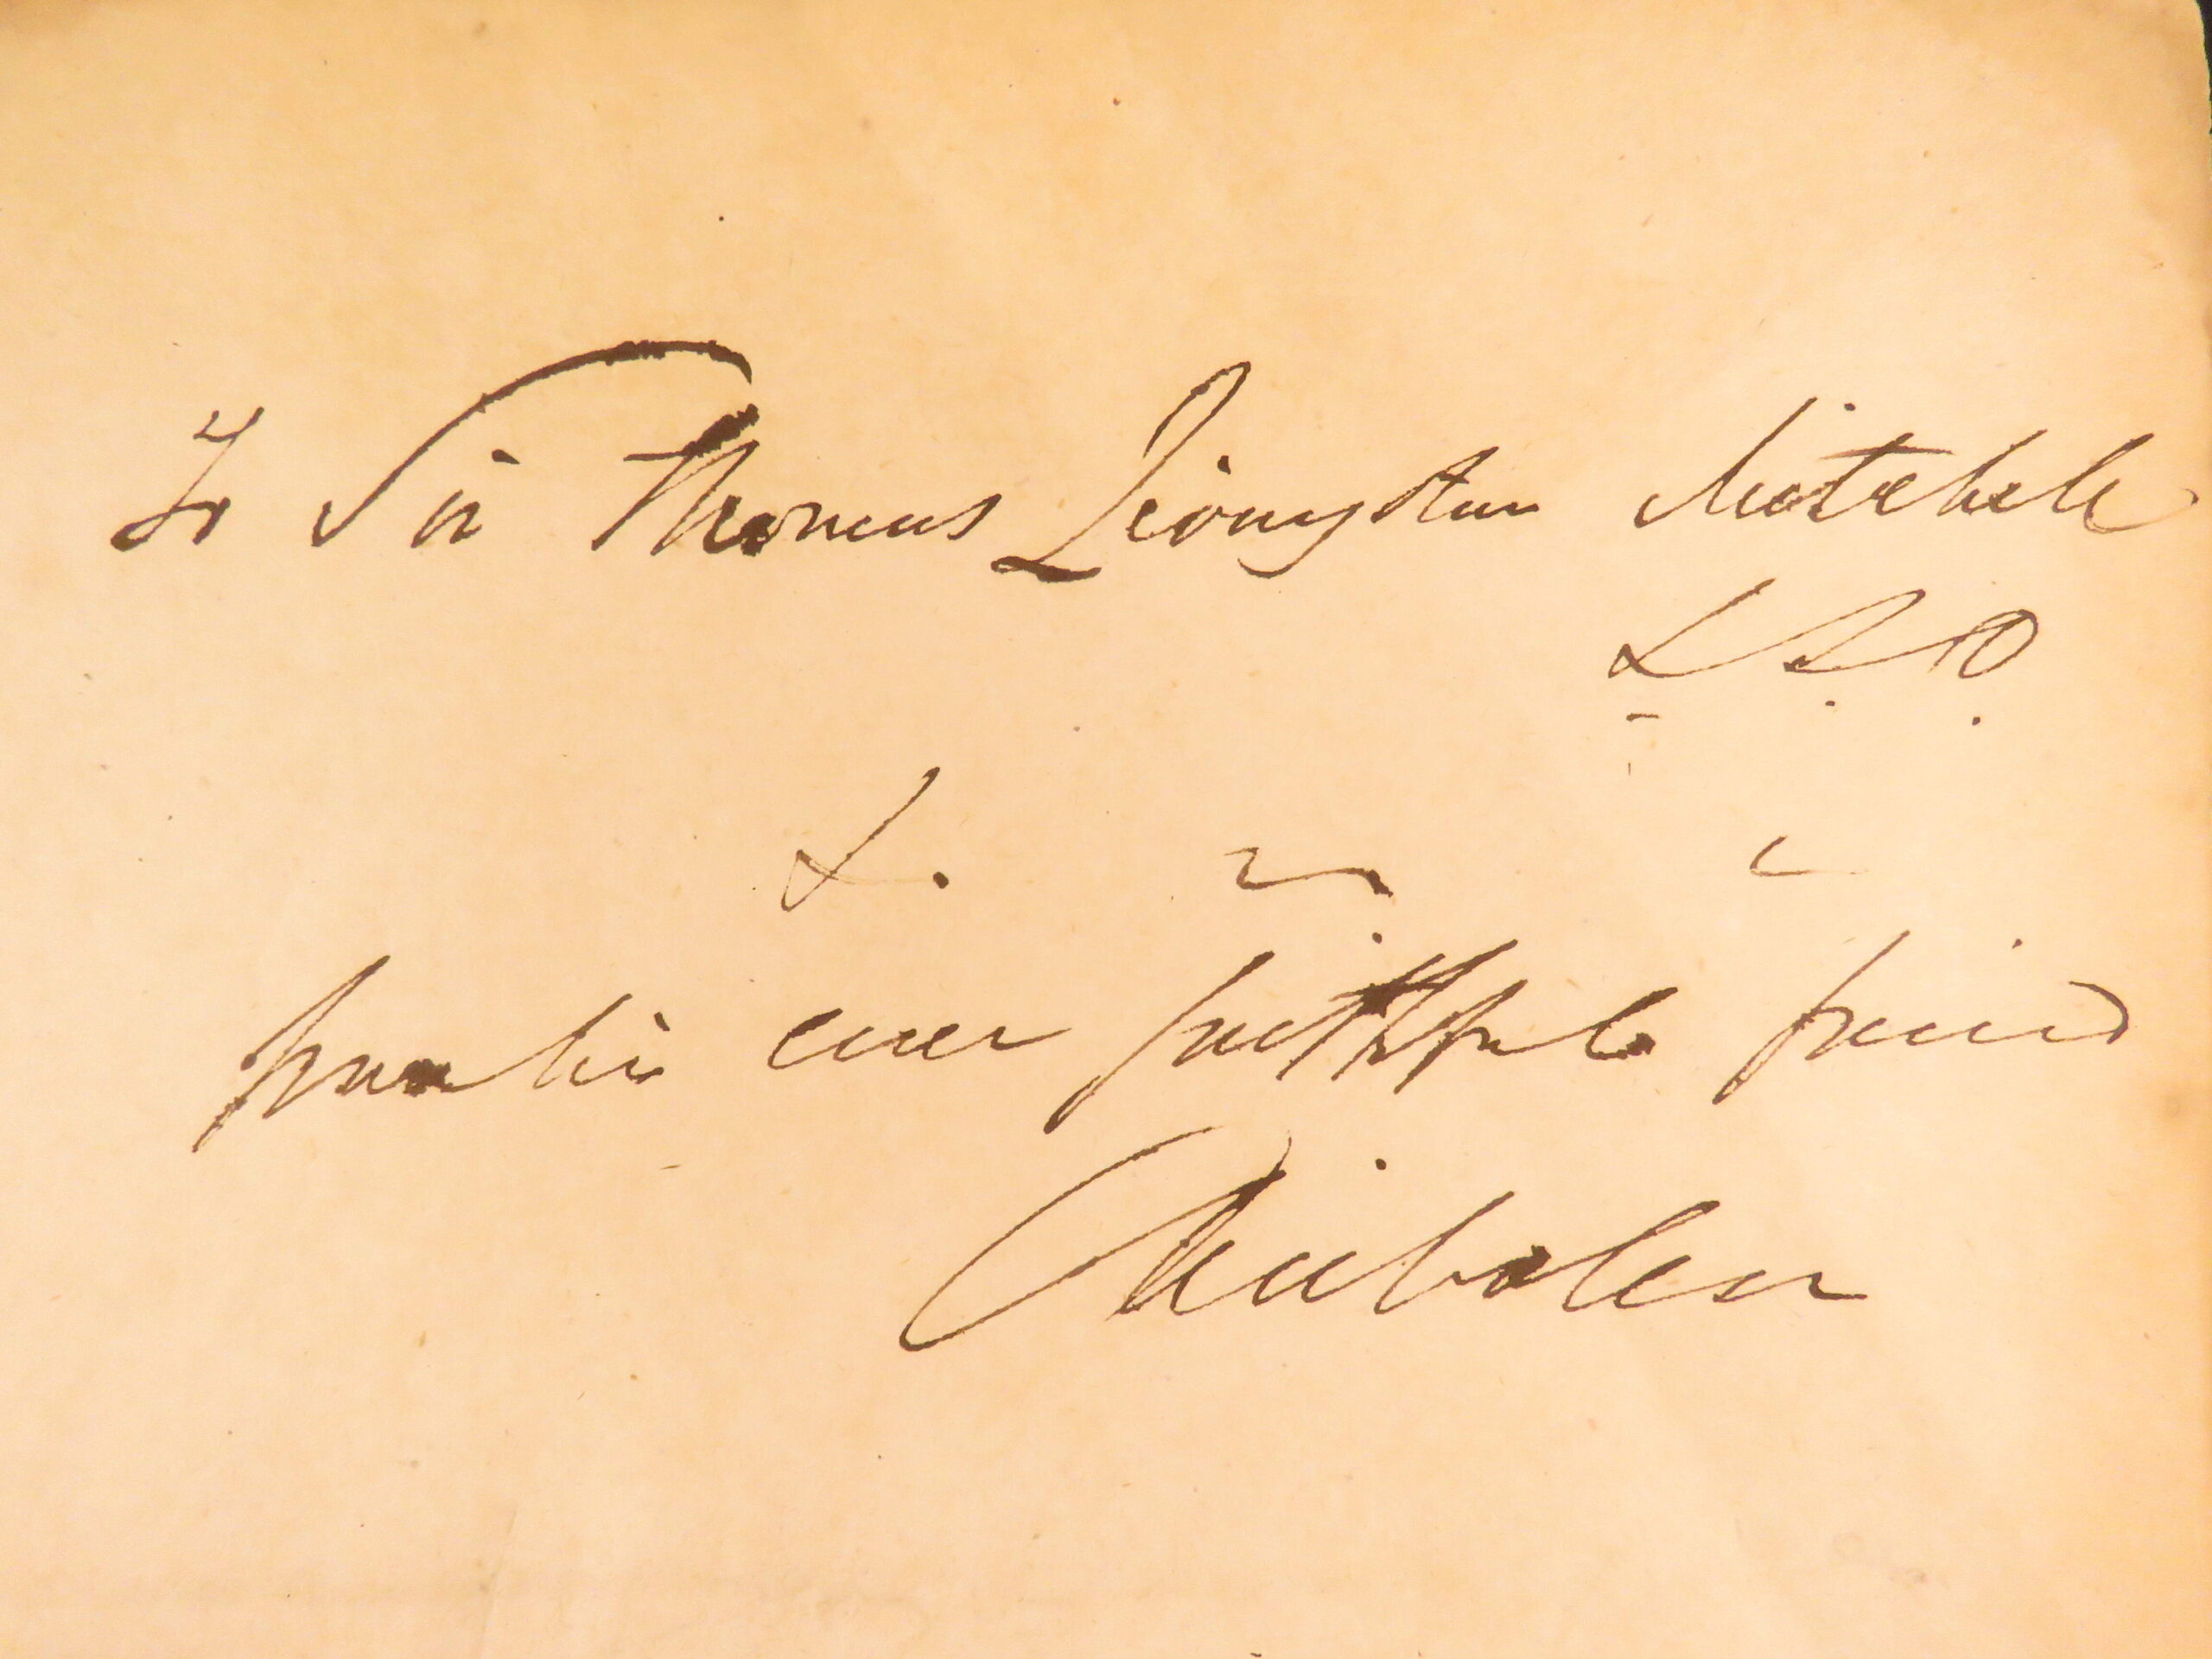 To Sir Thomas Livingston Mitchell
L. L. D.
&.
from his ever faithful friend